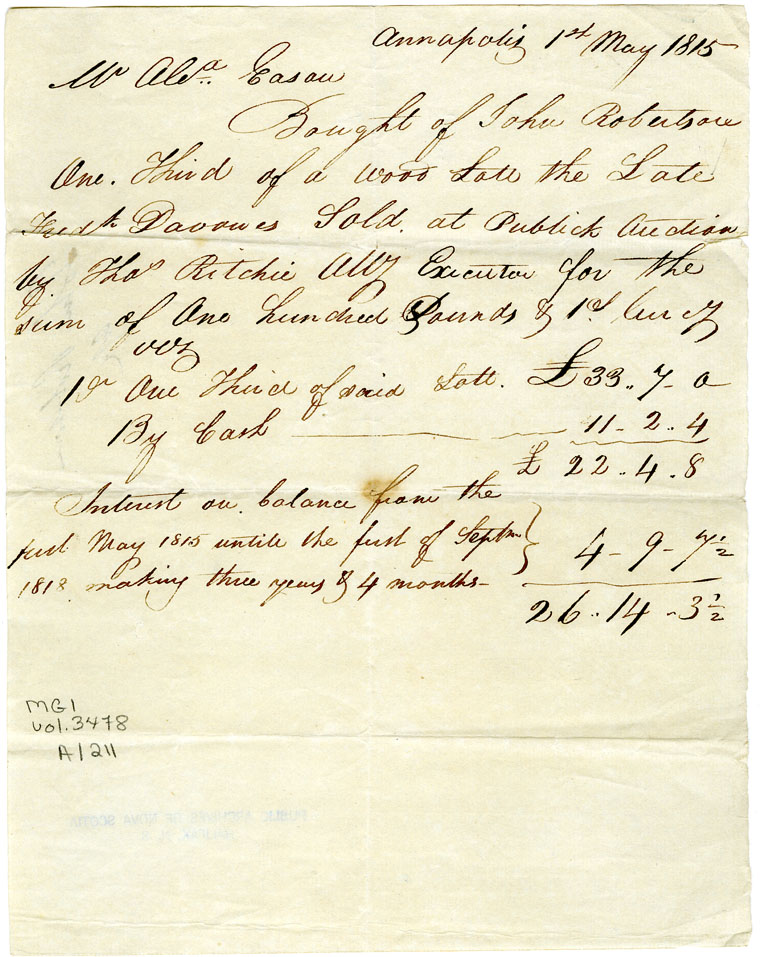 Annapolis 1st May 1815
Mr Alexa. Eason
Bought of John Robertson
One. Third of a wood Lott the Late
Fredk Davoues Sold. at Publick Auction
by Thos Ritchie Executor for the
Sum of One hundred Pounds & 1d Curcy
viz
One Third of said Lott. £33..7-0
By Cash 11-2-4
£ 22.4.8
Interest on balance from the
first May 1815 untile the first of Septm
1818 making three years & 4 months-
4-9-7½
26.14-3½
MG1
vol.3478
A/211
PUBLIC ARCHIVES OF NOVA SCOTIA
HALIFAX, N. S.